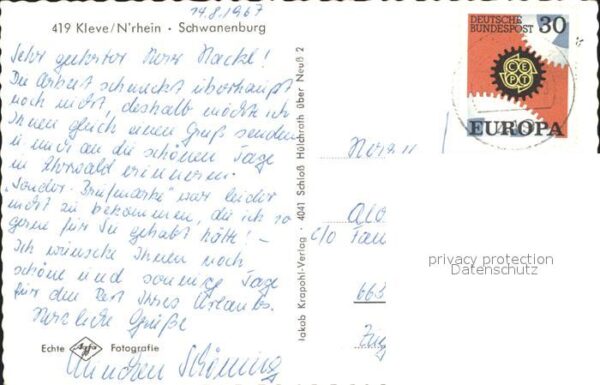 14.8.1967
419 Kleve/N'rhein · Schwanenburg
Sehr geehrter Herr Mackel!
Die Arbeit schmeckt überhaupt
noch nicht, deshalb möchte ich
Ihnen gleich einen Gruß senden
u. mich an die schönen Tage
in Ehrwald erinnern.
"Sonder-Briefmarke" war leider
nicht zu bekommen, die ich so
gerne für Sie gehabt hätte! -
Ich wünsche Ihnen noch
schöne und sonnige Tage
für den Rest Ihres Urlaubs.
Herzliche Grüße
Echte Agfa Fotografie
Jakob Krapohl-Verlag · 4041 Schloß Hülchrath über Neuß 2
DEUTSCHE
BUNDESPOST 30
CEPT
EUROPA
Herrn
c/o
663
privacy protection
Datenschutz